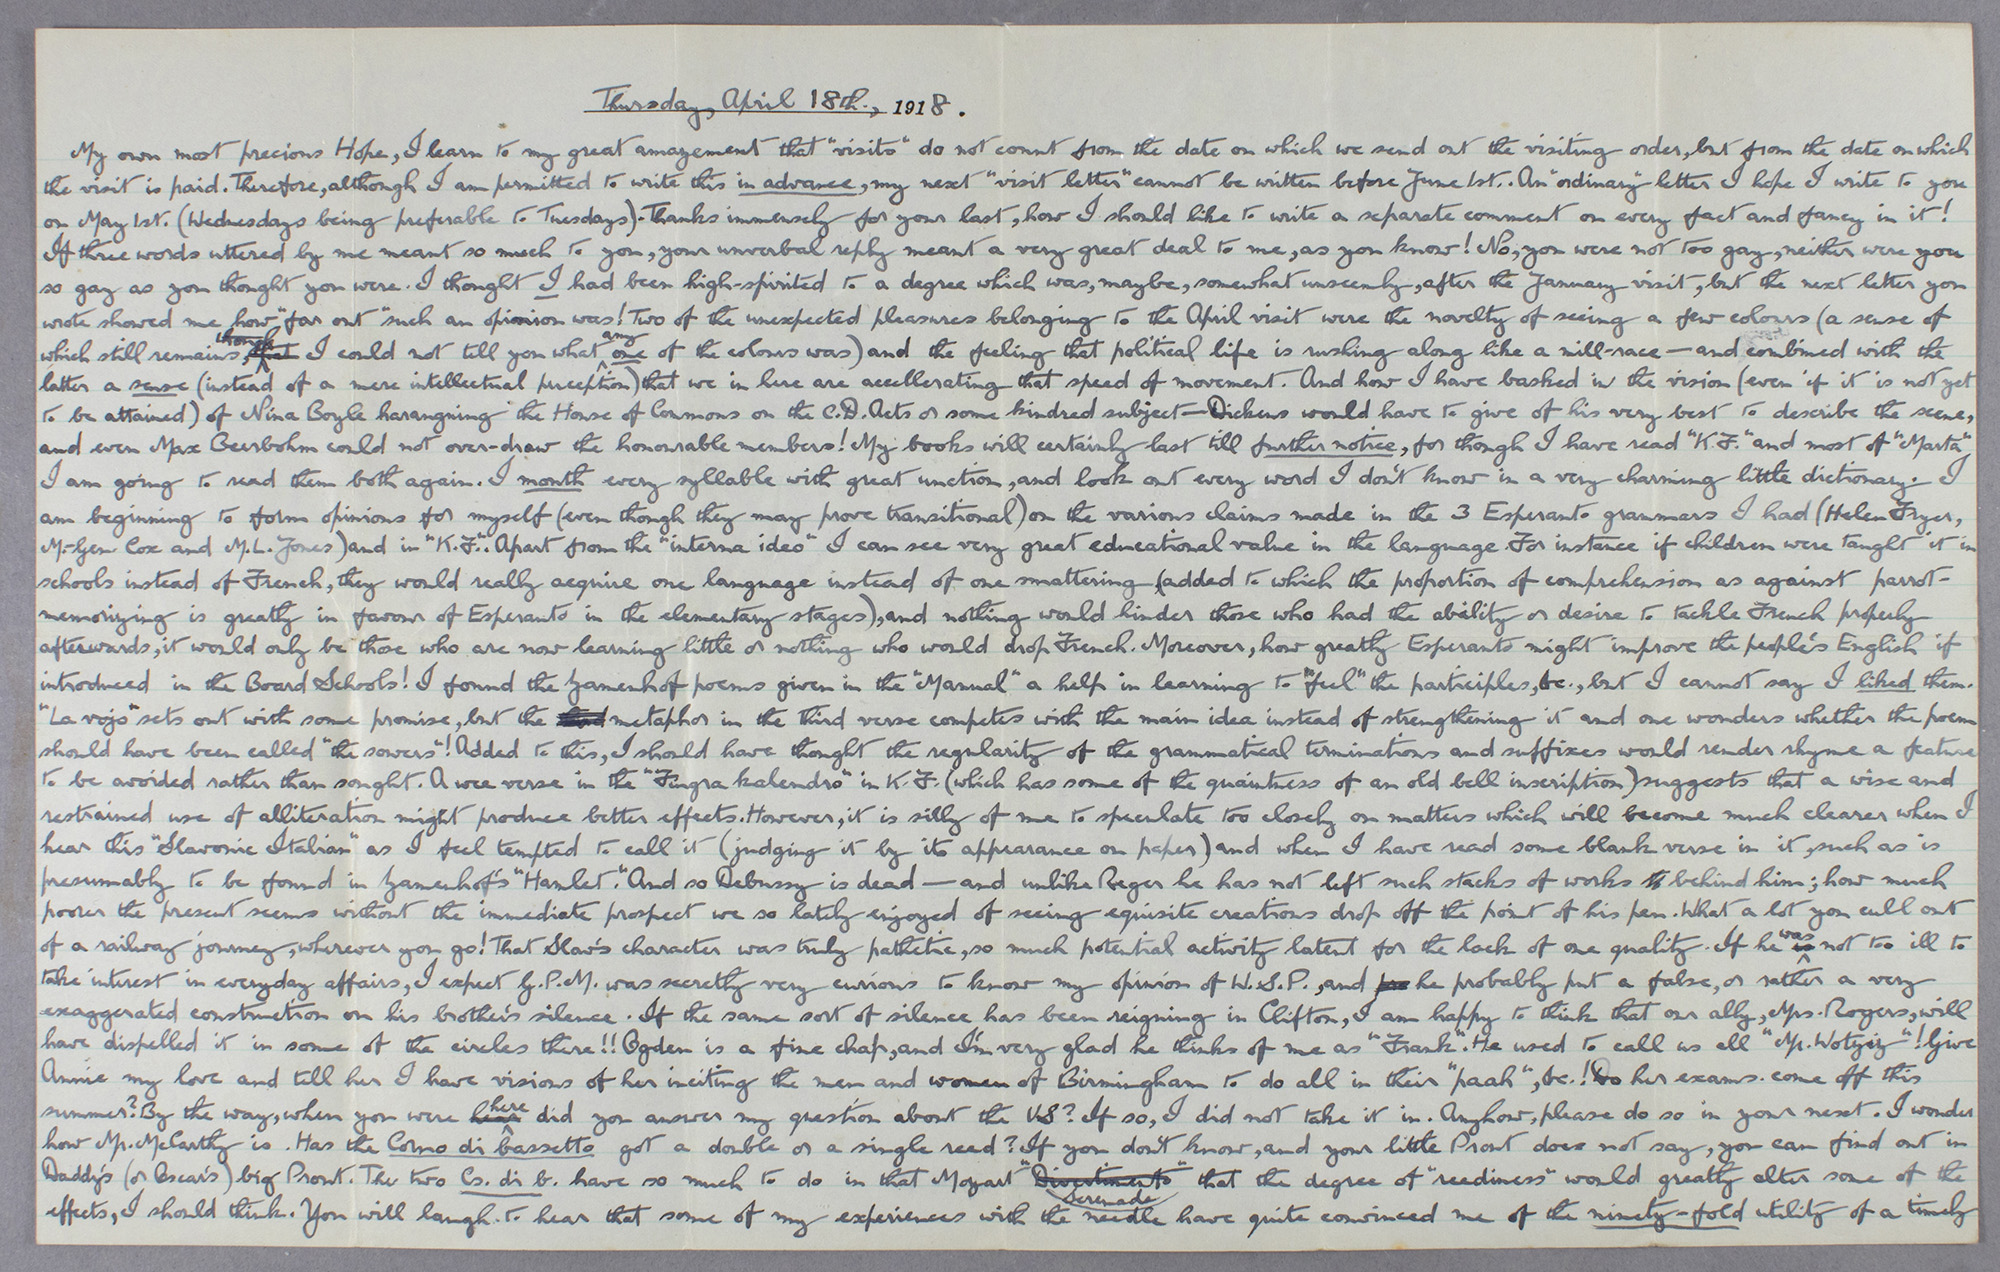 Thursday, April 18th., 1918.
My own most precious Hope, I learn to my great amazement that "visits" do not count from the date on which we send out the visiting order, but from the date on which
the visit is paid. Therefore, although I am permitted to write this in advance, my next "visit letter" cannot be written before June 1st.. An "ordinary" letter I hope I write to you
on May 1st. (Wednesdays being preferable to Tuesdays). Thanks immensely for your last, how I should like to write a separate comment on every fact and fancy in it!
If three words uttered by me meant so much to you, your unverbal reply meant a very great deal to me, as you know! No, you were not too gay, neither were you
so gay as you thought you were. I thought I had been high-spirited to a degree which was, maybe, somewhat unseemly, after the January visit, but the next letter you
wrote showed me how "far out" such an opinion was! Two of the unexpected pleasures belonging to the April visit were the novelty of seeing a few colours (a sense of
which still remains, though I could not tell you what any one of the colours was) and the feeling that political life is rushing along like a mill-race — and combined with the
latter a sense (instead of a mere intellectual perception) that we in here are accellerating that speed of movement. And how I have basked in the vision (even if it is not yet
to be attained) of Nina Boyle haranguing the House of Commons on the C.D. Acts or some kindred subject — Dickens would have to give of his very best to describe the scene,
and even Max Beerbohm could not over-draw the honourable members! My books will certainly last till further notice, for though I have read "K.F." and most of "Marta"
I am going to read them both again. I mouth every syllable with great unction, and look out every word I don't know in a very charming little dictionary. I
am beginning to form opinions for myself (even though they may prove transitional) on the various claims made in the 3 Esperanto grammars I had (Helen Fryer,
M.-Gen Cox and M.L. Jones) and in "K.F.". Apart from the "interna ideo" I can see very great educational value in the language. For instance if children were taught it in
schools instead of French, they would really acquire one language instead of one smattering (added to which the proportion of comprehension as against parrot-
memorizing is greatly in favour of Esperanto in the elementary stages), and nothing would hinder those who had the ability or desire to tackle French properly
afterwards, it would only be those who are now learning little or nothing who would drop French. Moreover, how greatly Esperanto might improve the people's English if
introduced in the Board Schools! I found the Zamenhof poems given in the "Manual" a help in learning to "feel" the participles, &c., but I cannot say I liked them.
"La vojo" sets out with some promise, but the metaphor in the third verse competes with the main idea instead of strengthening it and one wonders whether the poem
should have been called "the sowers"! Added to this, I should have thought the regularity of the grammatical terminations and suffixes would render rhyme a feature
to be avoided rather than sought. A wee verse in the "Fingra kalendro" in K.F. (which has some of the quaintness of an old bell inscription) suggests that a wise and
restrained use of alliteration might produce better effects. However, it is silly of me to speculate too closely on matters which will become much clearer when I
hear this "Slavonic Italian" as I feel tempted to call it (judging it by its appearance on paper) and when I have read some blank verse in it, such as is
presumably to be found in Zamenhof's "Hamlet." And so Debussy is dead — and unlike Reger he has not left such stacks of works behind him; how much
poorer the present seems without the immediate prospect we so lately enjoyed of seeing equisite creations drop off the point of his pen. What a lot you cull out
of a railway journey, wherever you go! That Slav's character was truly pathetic, so much potential activity latent for the lack of one quality. If he was not too ill to
take interest in everyday affairs, I expect G.P.M. was secretly very curious to know my opinion of W.S.P., and he probably put a false, or rather a very
exaggerated construction on his brother's silence. If the same sort of silence has been reigning in Clifton, I am happy to think that our ally, Mrs. Rogers, will
have dispelled it in some of the circles there!! Ogden is a fine chap, and I'm very glad he thinks of me as "Frank". He used to call us all "Mr. Wotziz"! Give
Annie my love and tell her I have visions of her inciting the men and women of Birmingham to do all in their "paah", &c.! Do her exams. come off this
summer? By the way, when you were here did you answer my question about the V.S? If so, I did not take it in. Anyhow, please do so in your next. I wonder
how Mr. McCarthy is. Has the Corno di bassetto got a double or a single reed? If you don't know, and your little Prout does not say, you can find out in
Daddy's (or Oscar's) big Prout. The two Cs. di b. have so much to do in that Mozart "Serenade" that the degree of "reediness" would greatly alter some of the
effects, I should think. You will laugh to hear that some of my experiences with the needle have quite convinced me of the ninety-fold utility of a timely